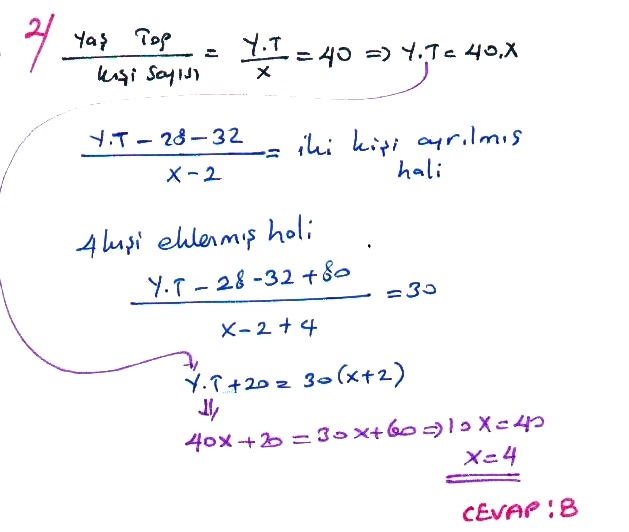 2/ Yaş Top / kişi sayısı = Y.T / x = 40 ⇒ Y.T = 40.x
Y.T - 28 - 32 / x - 2 = iki kişi ayrılmış
hali
4 kişi eklenmiş hali
Y.T - 28 - 32 + 80 / x - 2 + 4 = 30
Y.T + 20 = 30(x+2)
⇓
40x + 20 = 30x + 60 ⇒ 10x = 40
x = 4
CEVAP : B